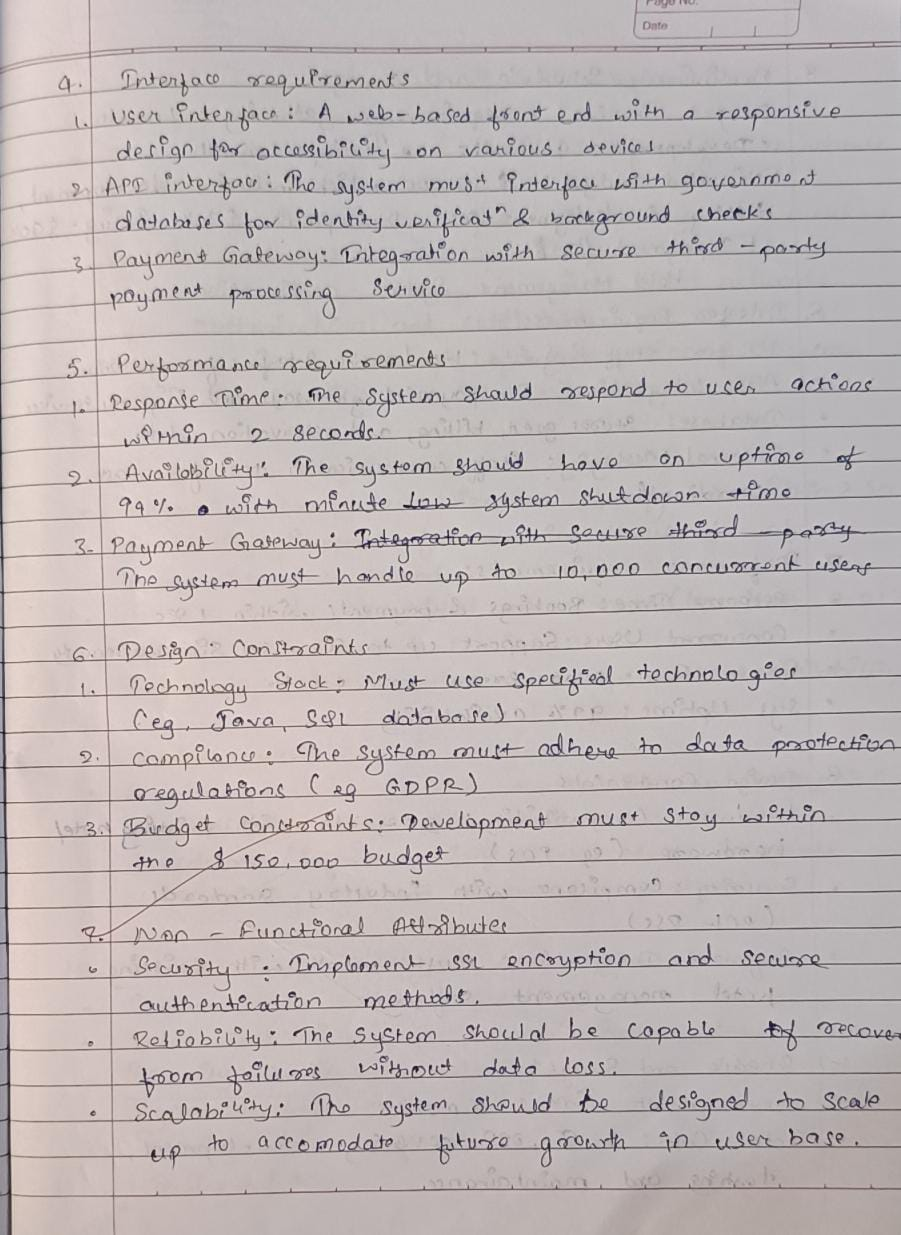 Page No.
Date
4. Interface requirements
1. User interface: A web-based front end with a responsive
design for accessibility on various devices
2. API interface: The system must interface with government
databases for identity verificatⁿ & background checks
3. Payment Gateway: Integration with secure third-party
payment processing service
5. Performance requirements
1. Response Time: The system should respond to user actions
within 2 seconds.
2. Availability: The system should have an uptime of
99% with minute low system shutdown time
3. Payment Gateway: Integration with secure third-party
The system must handle up to 10,000 concurrent users
6. Design Constraints
1. Technology Stack: Must use specified technologies
(eg, Java, SQL database)
2. Compilance: The system must adhere to data protection
regulations (eg GDPR)
3. Budget Constraints: Development must stay within
the $150,000 budget
7. Non-Functional Attributes
• Security: Implement SSL encryption and secure
authentication methods.
• Reliability: The system should be capable of recover
from failures without data loss.
• Scalability: The system should be designed to scale
up to accomodate future growth in user base.